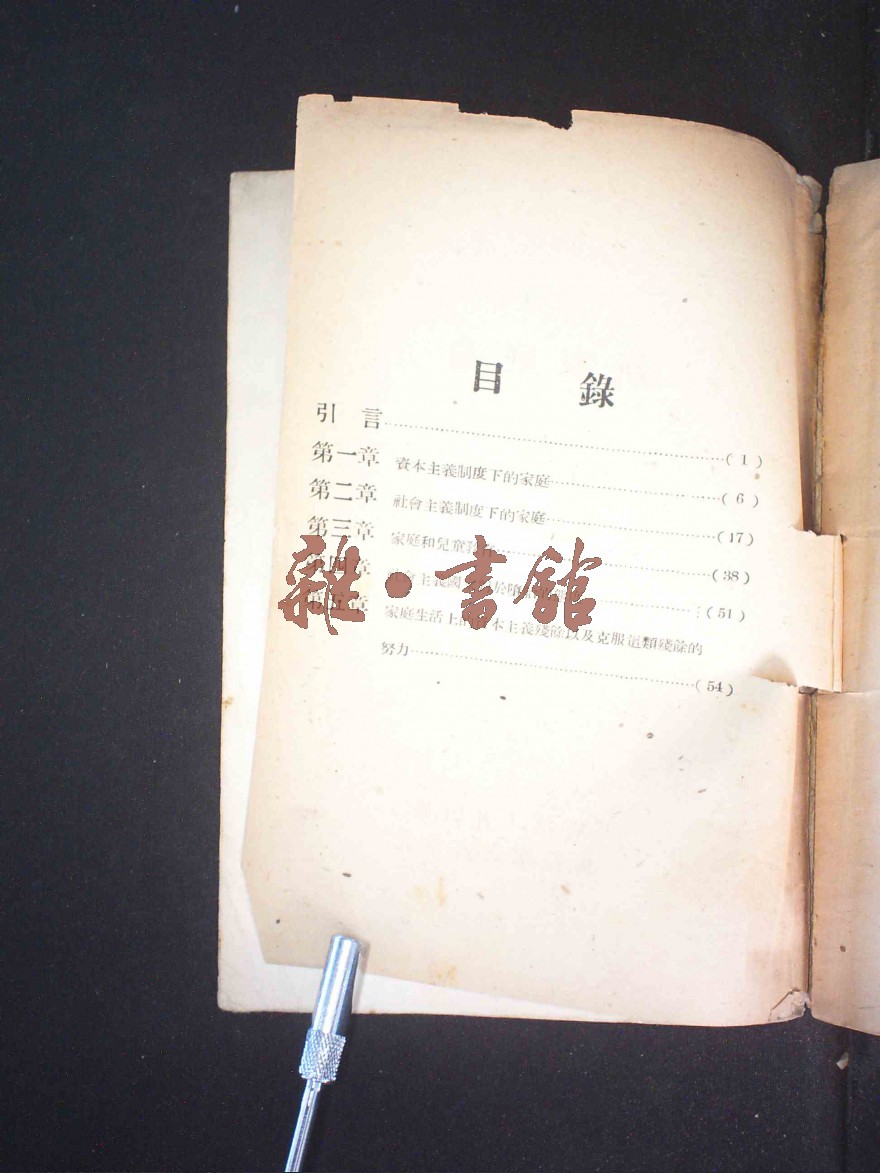 目 錄
引 言……(1)
第一章 資本主義制度下的家庭……(6)
第二章 社會主義制度下的家庭……(17)
第三章 家庭和兒童……(38)
第四章 社會主義國……(51)
第五章 家庭生活上的資本主義殘餘以及克服這類殘餘的
努力……(54)
雜·書館